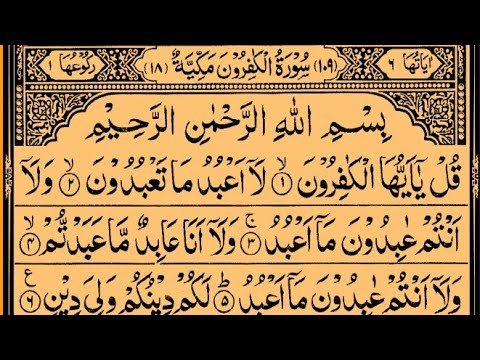 اٰیَاتُهَا ٦ (١٠٩) سُوْرَةُ الْكٰفِرُوْنَ مَكِّيَّةٌ (١٨) رُكُوْعُهَا ١
بِسْمِ اللهِ الرَّحْمٰنِ الرَّحِيْمِ
قُلْ يٰۤاَيُّهَا الْكٰفِرُوْنَ ۙ﴿١﴾ لَاۤ اَعْبُدُ مَا تَعْبُدُوْنَ ۙ﴿٢﴾ وَلَاۤ
اَنْتُمْ عٰبِدُوْنَ مَاۤ اَعْبُدُ ۚ﴿٣﴾ وَلَاۤ اَنَا عَابِدٌ مَّا عَبَدْتُّمْ ۙ﴿٤﴾
وَلَاۤ اَنْتُمْ عٰبِدُوْنَ مَاۤ اَعْبُدُ ؕ﴿٥﴾ لَكُمْ دِيْنُكُمْ وَلِيَ دِيْنِ ﴿٦﴾ ع